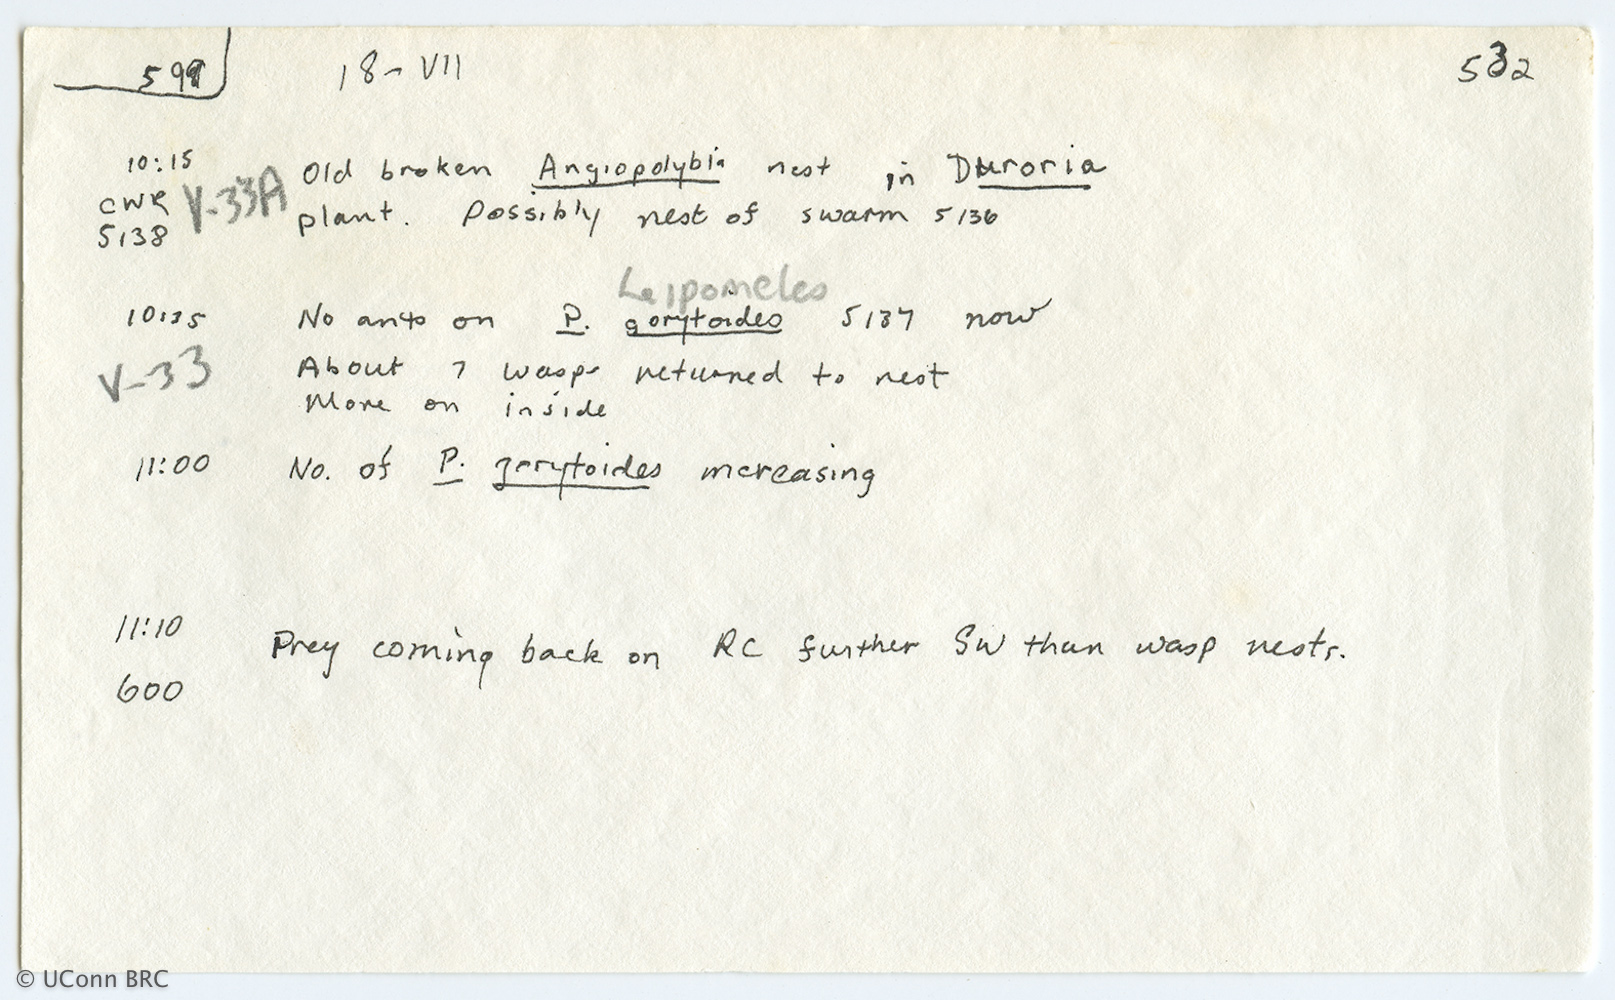 599 18-VII 532
10:15 Old broken Angiopolybia nest in Duroria
CWR V-33A
5138 plant. Possibly nest of swarm 5136
Leipomeles
10:35 No ants on P. gorytoides 5137 now
V-33 About 7 wasps returned to nest
More on inside
11:00 No. of P. gorytoides increasing
11:10 Prey coming back on RC further SW than wasp nests.
600
© UConn BRC